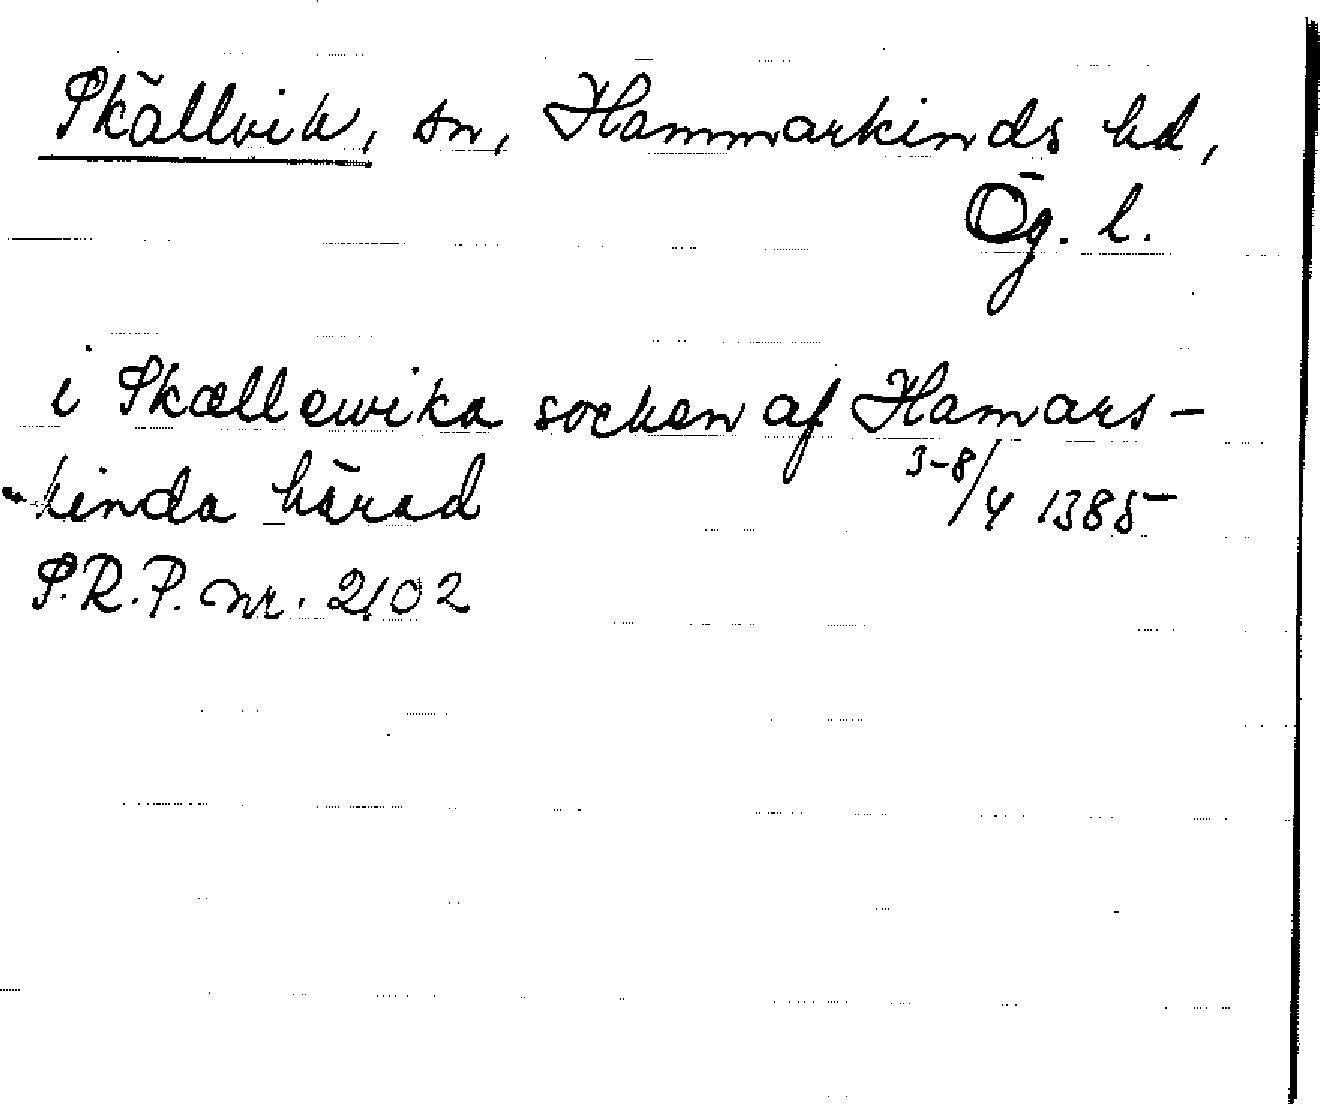 Skällvik, sn, Hammarkinds hd,
Ög. l.
i Skællewika socken af Hamars-
-kinda härad 3-8/4 1385
S.R.P. nr. 2102